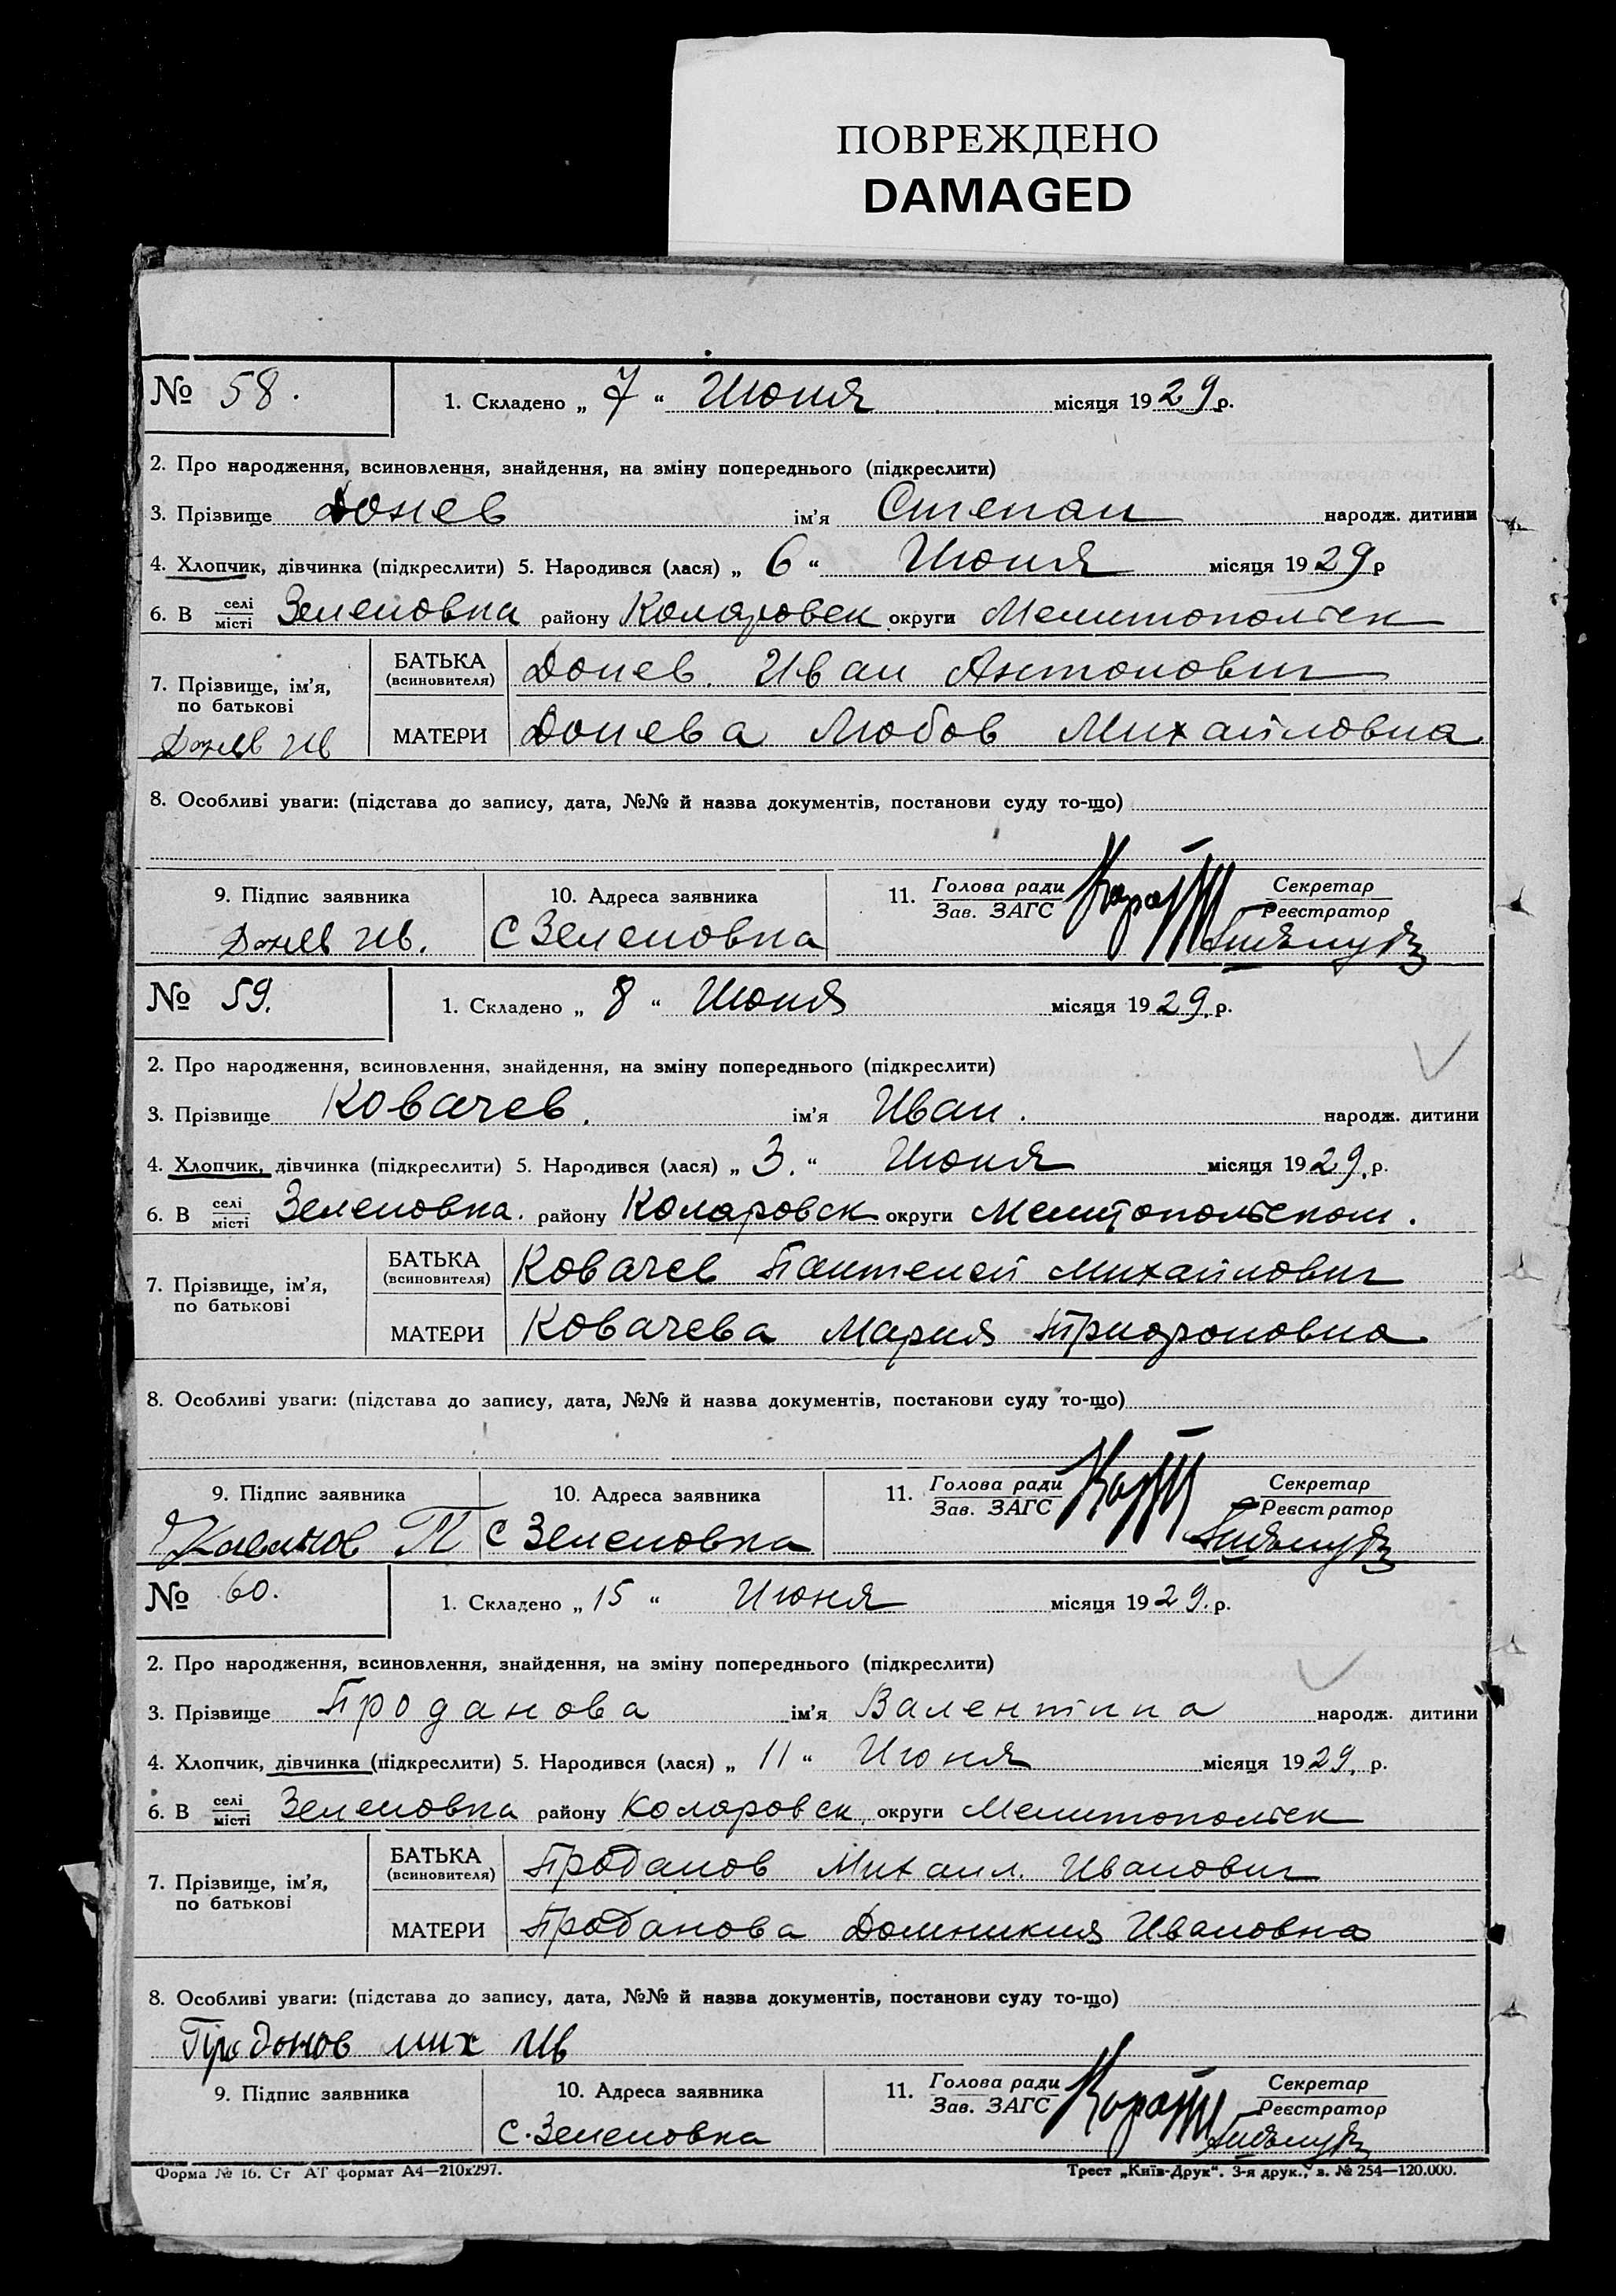 ПОВРЕЖДЕНО
DAMAGED
№ 58. 1. Складено „ 7 “ Июня місяця 1929 р.
2. Про народження, всиновлення, знайдення, на зміну попереднього (підкреслити)
3. Прізвище Донев ім’я Степан народж. дитини
4. Хлопчик, дівчинка (підкреслити) 5. Народився (лася) „ 6 “ Июня місяця 1929 р
6. В селі місті Зеленовка району Коларовск округи Мелитопольск
7. Прізвище, ім’я, по батькові БАТЬКА (всиновителя) Донев. Иван Антонович
Донев Ив МАТЕРИ Донева Любов Михайловна
8. Особливі уваги: (підстава до запису, дата, №№ й назва документів, постанови суду то-що)
9. Підпис заявника 10. Адреса заявника 11. Голова ради Зав. ЗАГС Секретар Реєстратор
Донев Ив. С Зеленовка
№ 59. 1. Складено „ 8 “ Июня місяця 1929. р.
2. Про народження, всиновлення, знайдення, на зміну попереднього (підкреслити)
3. Прізвище Ковачев. ім’я Иван. народж. дитини
4. Хлопчик, дівчинка (підкреслити) 5. Народився (лася) „ 3. “ Июня місяця 1929. р.
6. В селі місті Зеленовка. району Коларовск округи Мелитопольском.
7. Прізвище, ім’я, по батькові БАТЬКА (всиновителя) Ковачев Пантелей Михайлович
МАТЕРИ Ковачева Мария
8. Особливі уваги: (підстава до запису, дата, №№ й назва документів, постанови суду то-що)
9. Підпис заявника 10. Адреса заявника 11. Голова ради Зав. ЗАГС Секретар Реєстратор
П с Зеленовка
№ 60. 1. Складено „ 15 “ Июня місяця 1929. р.
2. Про народження, всиновлення, знайдення, на зміну попереднього (підкреслити)
3. Прізвище Проданова ім’я Валентина народж. дитини
4. Хлопчик, дівчинка (підкреслити) 5. Народився (лася) „ 11 “ Июня місяця 1929. р.
6. В селі місті Зеленовка району Коларовск округи Мелитопольск
7. Прізвище, ім’я, по батькові БАТЬКА (всиновителя) Проданов Михаил. Иванович
МАТЕРИ Проданова Домникия Ивановна
8. Особливі уваги: (підстава до запису, дата, №№ й назва документів, постанови суду то-що)
Продонов мих Ив
9. Підпис заявника 10. Адреса заявника 11. Голова ради Зав. ЗАГС Секретар Реєстратор
с. Зеленовка
Форма № 16. Ст АТ формат А4—210х297. Трест „Київ-Друк“. 3-я друк., з. № 254—120.000.